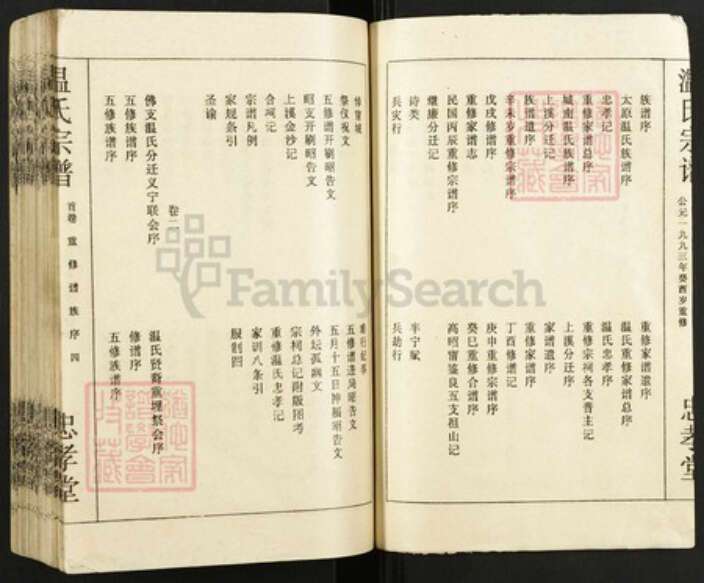 温氏宗谱
公元一九九三年癸酉岁重修
忠孝堂
族谱序
重修家谱遗序
太原温氏族谱序
温氏重修家谱总序
忠孝记
温氏忠孝序
重修家谱总序
重修宗祠各支普主记
城南温氏族谱序
上溪分迁序
上溪分迁记
家谱遗序
族谱遗序
重修家谱序
辛未岁重修宗谱序
丁酉修谱记
戊戌修谱序
庚申重修宗谱序
重修家谱志
癸巳重修合谱序
民国丙辰重修宗谱序
高昭雷鉴良五支祖山记
继廉分迁记
诗类
半宁赋
兵灾行
兵劫行
祭仪祝文
五修谱造局昭告文
五修谱开刷昭告文
五月十五日神福昭告文
昭支开刷昭告文
外坛孤魂文
上溪金沙记
宗祠总记附版图考
合祠记
重修温氏忠孝记
宗谱凡例
家训八条引
家规条引
服制四
圣谕
卷二
佛支温氏分迁义宁联会序
温氏贤裔重理祭会序
五修族谱序
修谱序
五修族谱序
五修族谱序
温氏宗谱
首卷 重修谱族序 四
忠孝堂
FamilySearch